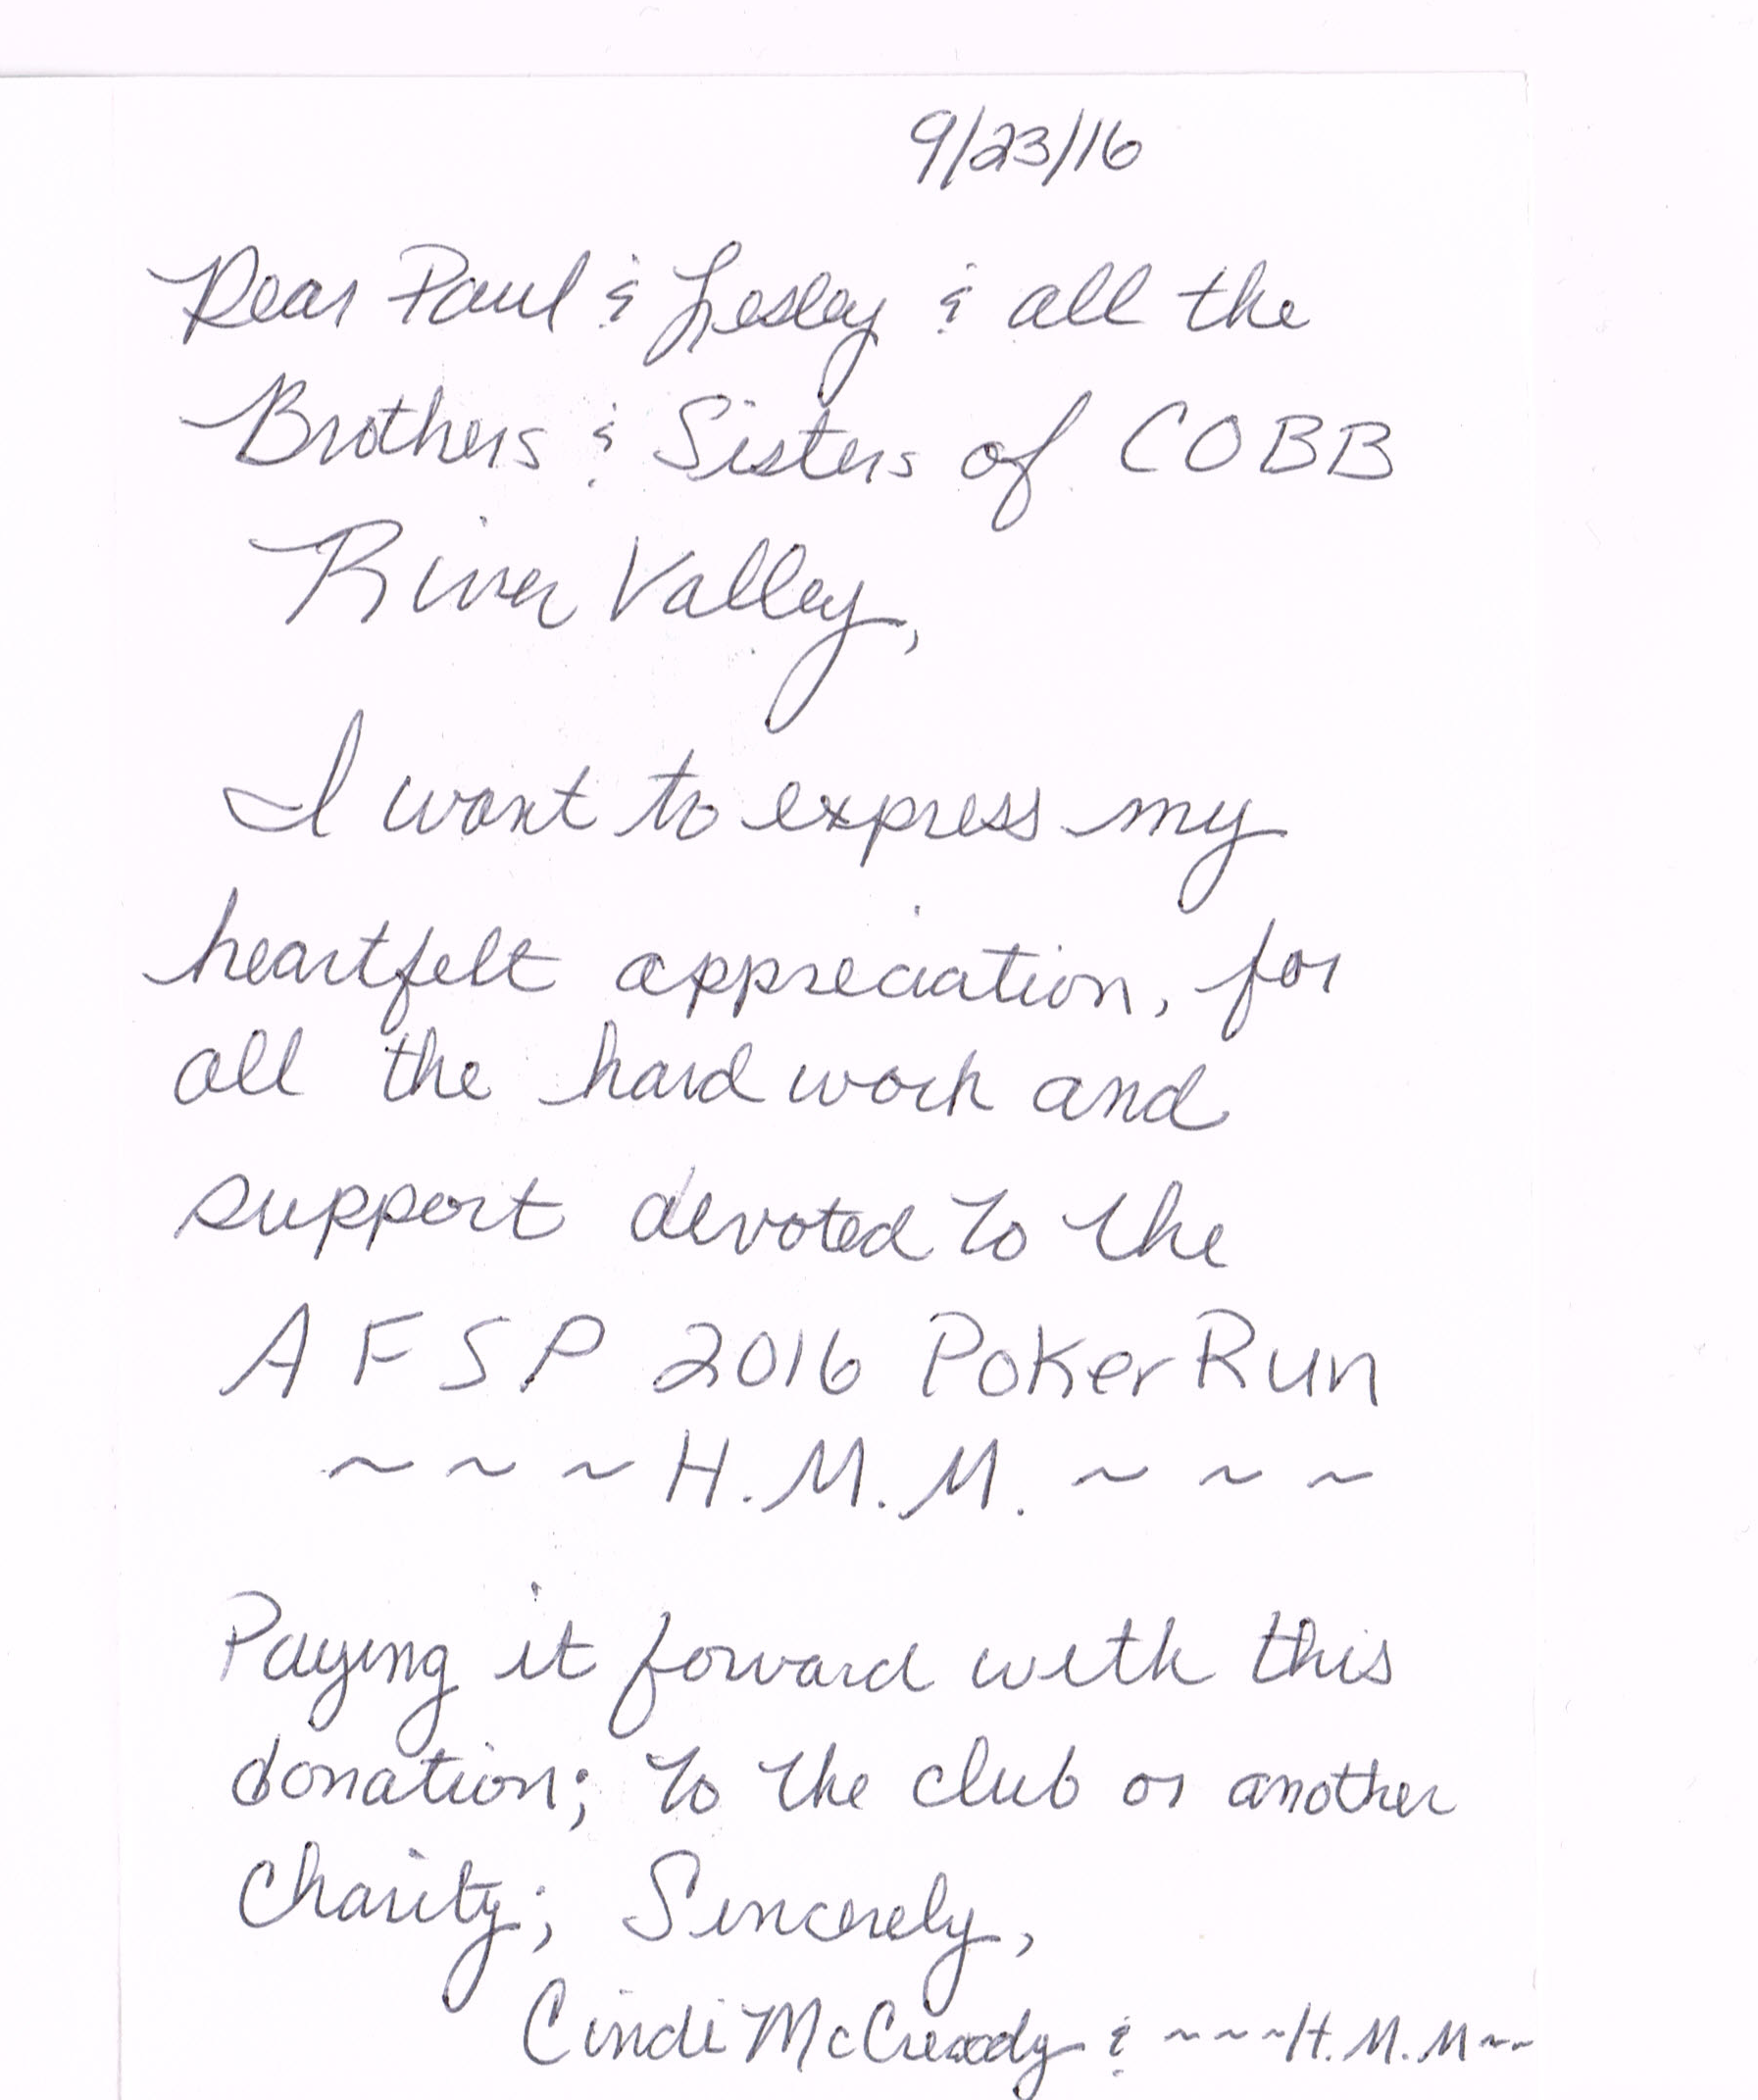 9/23/16
Dear Paul & Lesley & all the
Brothers & Sisters of COBB
River Valley,
I want to express my
heartfelt appreciation, for
all the hard work and
support devoted to the
AFSP 2016 Poker Run
~ ~ ~ H.M.M. ~ ~ ~
Paying it forward with this
donation; to the club or another
Charity; Sincerely,
Cindi McCready & ~~~H.M.M~~